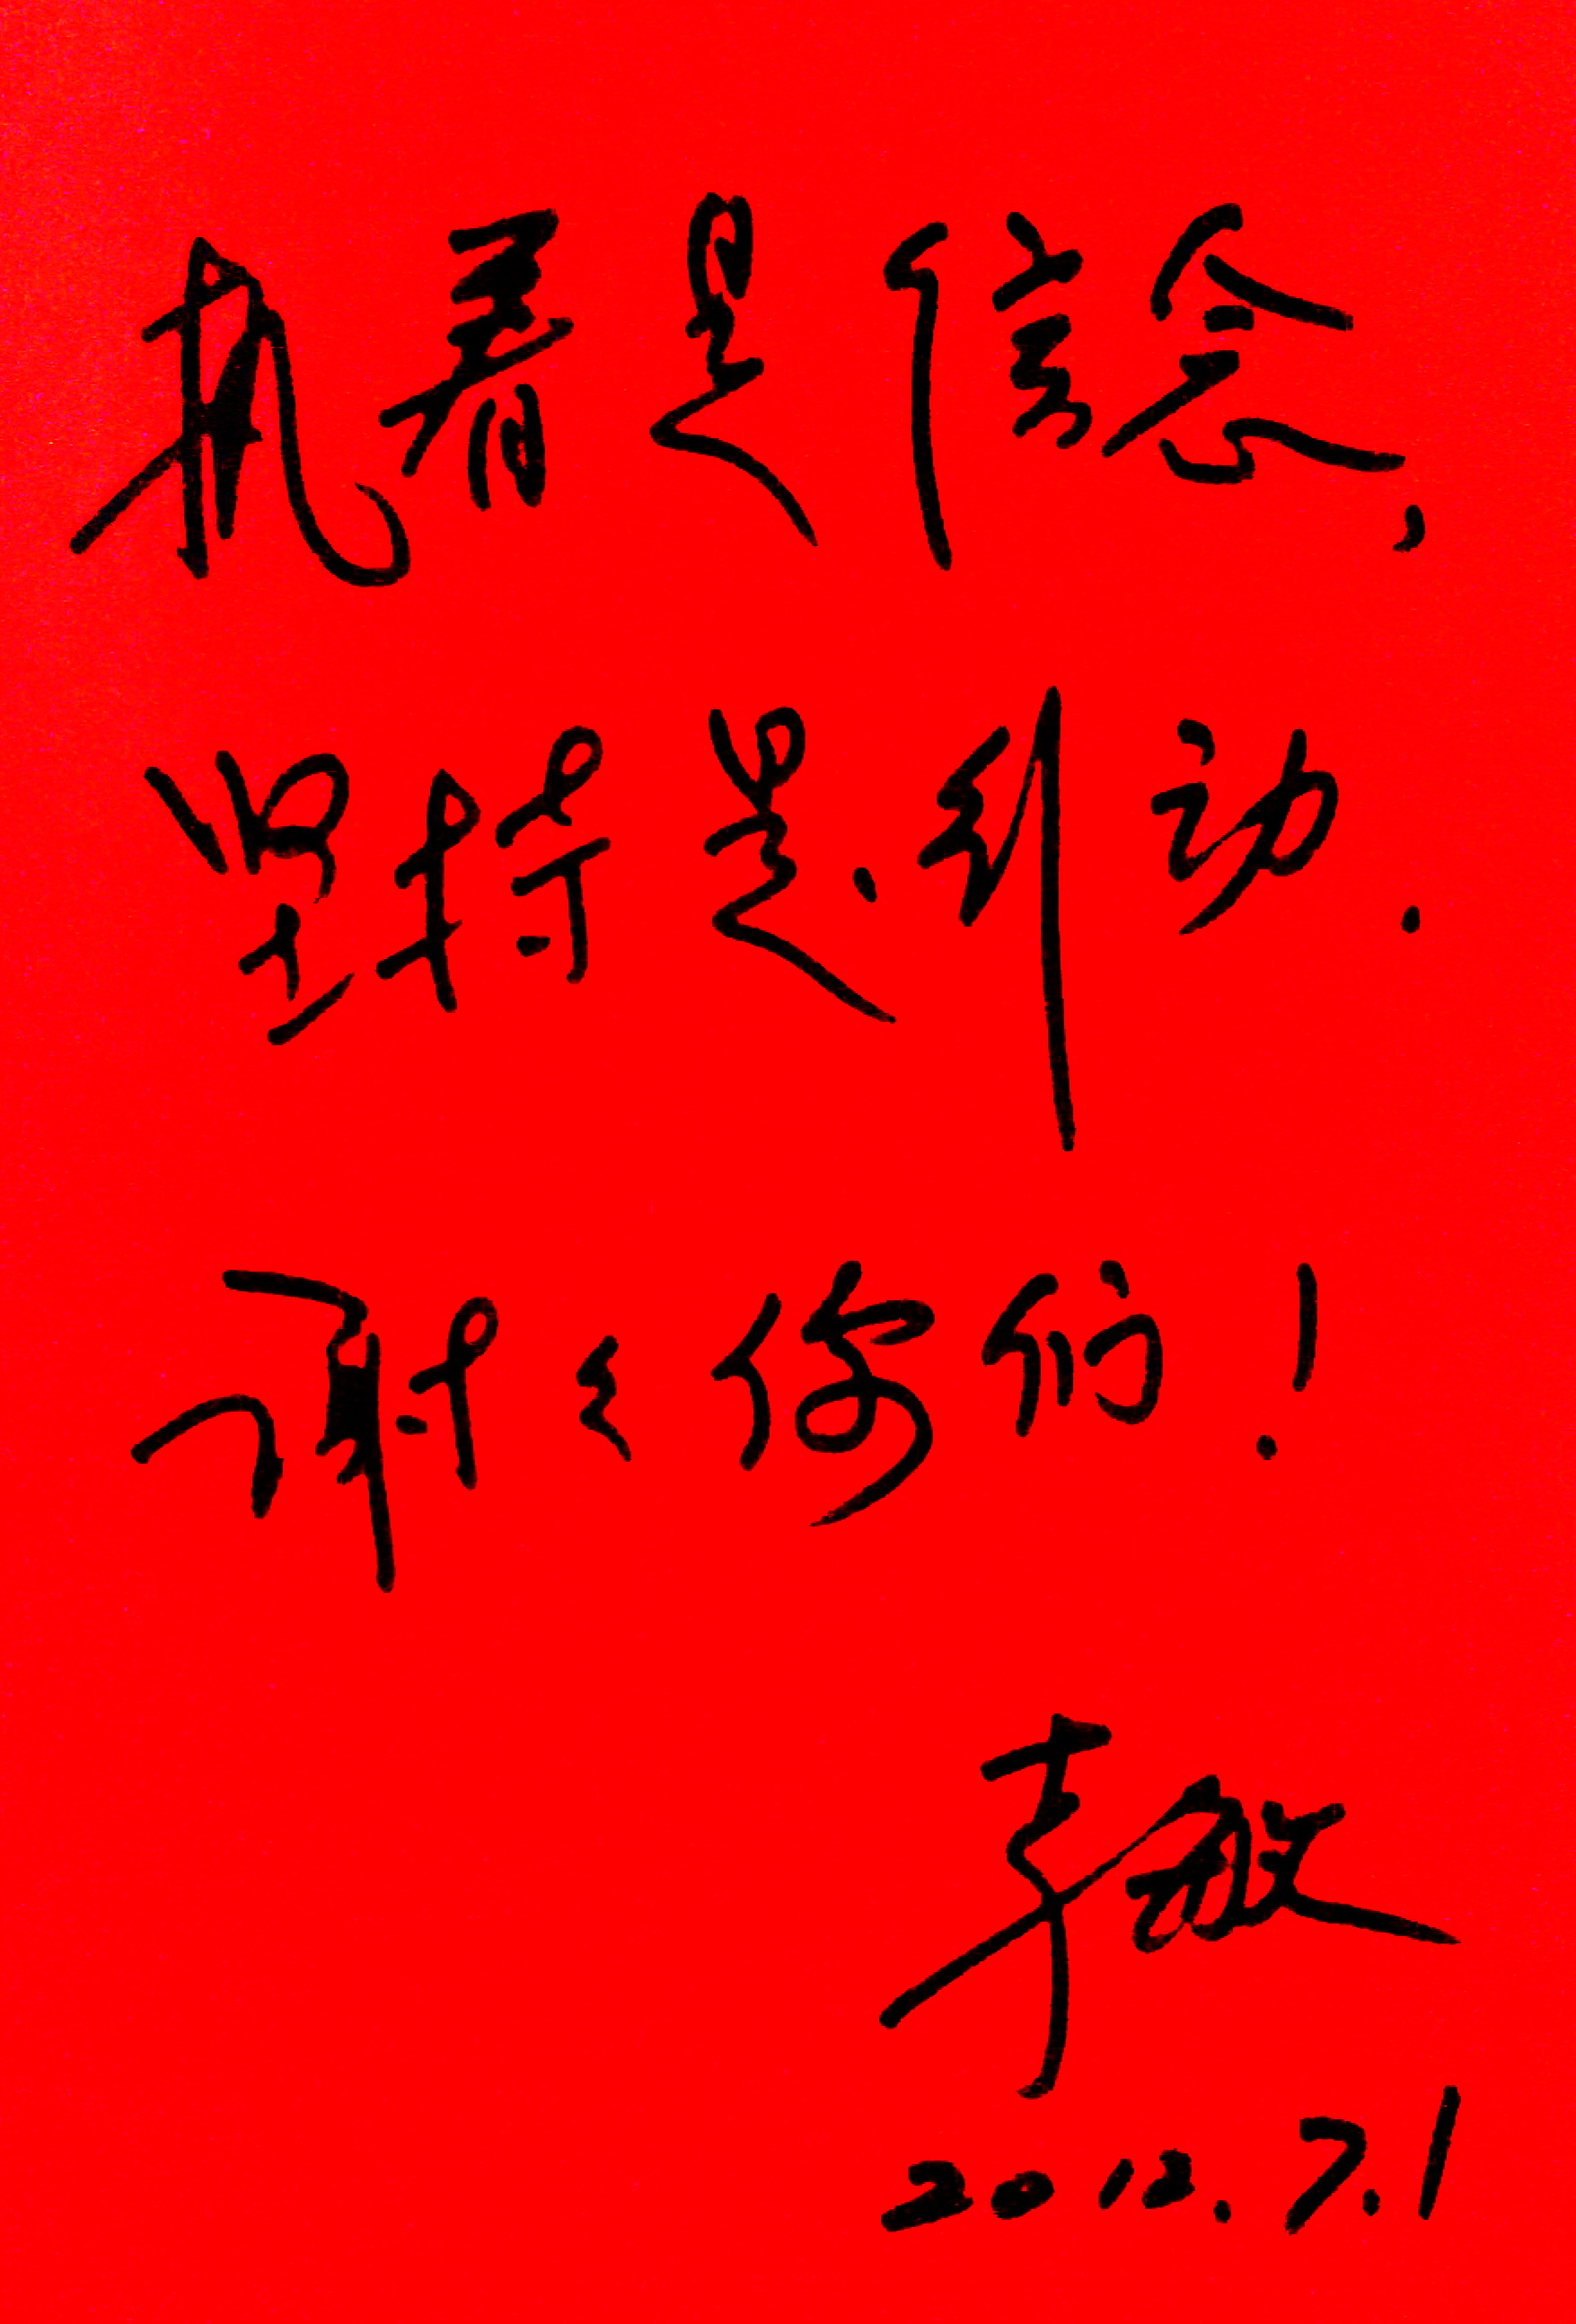 执着是信念,
坚持是行动.
谢々你们!
李敏
2012.7.1